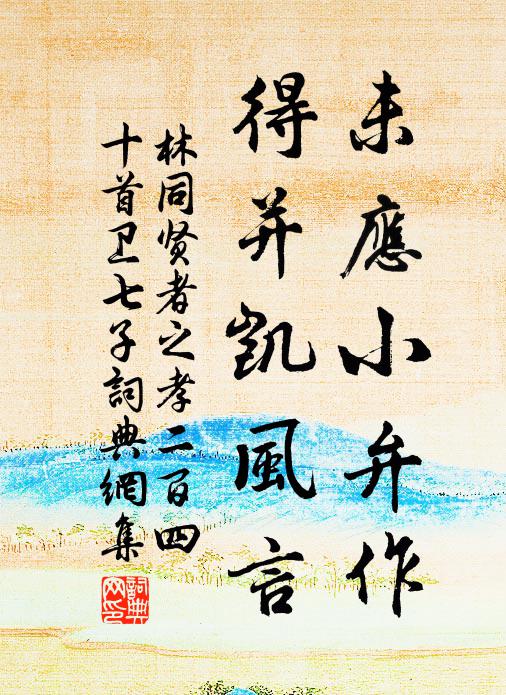 未應小弁作
得并凱風言
林同贤者之孝二百四
十首卫七子詞典網集
詞典網印